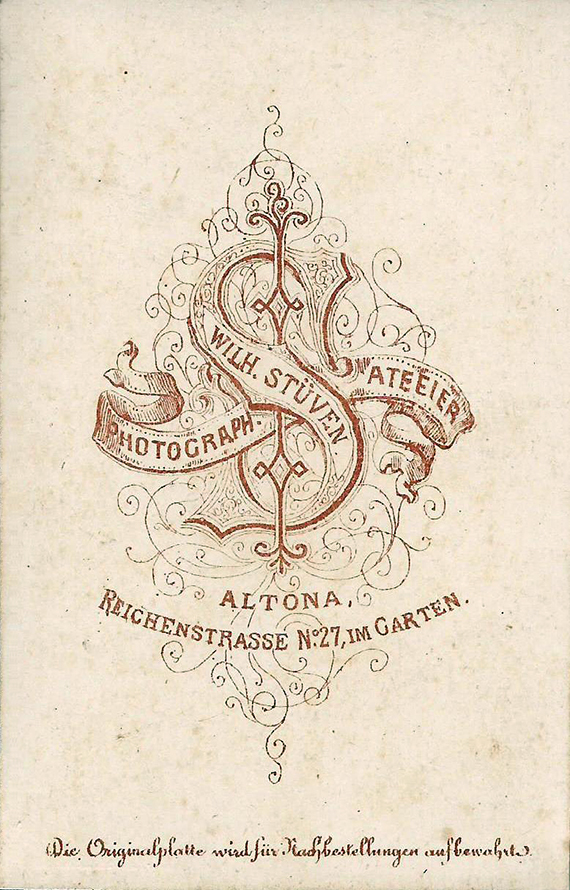 WILH. STÜVEN
PHOTOGRAPH. ATEEIER
ALTONA,
REICHENSTRASSE No. 27, IM GARTEN.
Die Originalplatte wird für Nachbestellungen aufbewahrt.